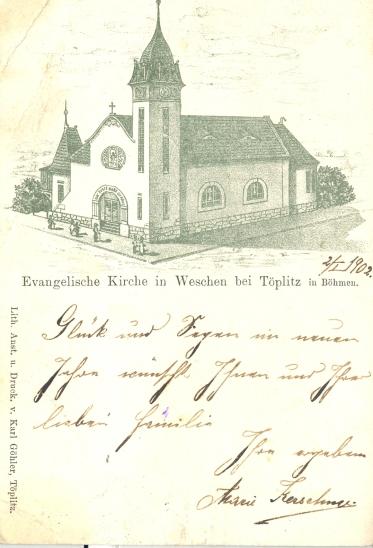 2/I 1902.
Evangelische Kirche in Weschen bei Töplitz in Böhmen.
Glück und Segen im neuen
Jahre wünscht Ihnen und Ihrer
lieben Familie
Ihre ergebene
Lith. Anst. u. Druck. v. Karl Göhler, Töplitz.